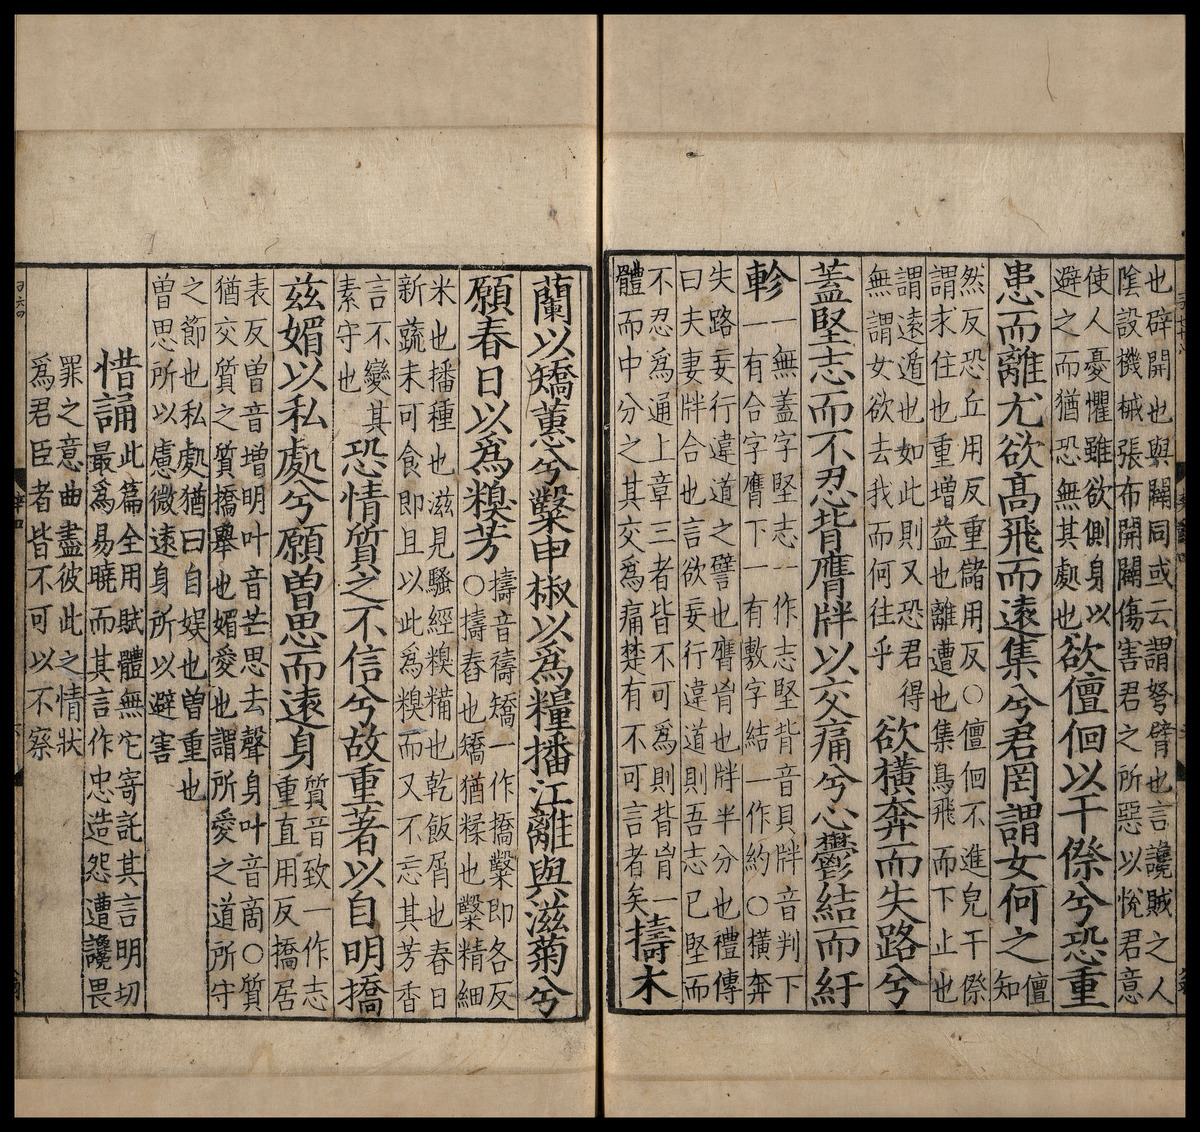 也辟開也與闢同或云謂弩臂也言讒賊之人
陰設機械張布開闢傷害君之所惡以悅君意
使人憂懼雖欲側身以
避之而猶恐無其處也
欲儃佪以干傺兮恐重
患而離尤欲高飛而遠集兮君罔謂女何之
儃
知
然反恐丘用反重儲用反○儃佪不進皃干傺
謂求住也重增益也離遭也集鳥飛而下止也
謂遠遁也如此則又恐君得
無謂女欲去我而何往乎
欲橫奔而失路兮
蓋堅志而不忍背膺牉以交痛兮心鬱結而紆
軫
一無蓋字堅志一作志堅背音貝牉音判下
一有合字膺下一有敷字結一作約○橫奔
失路妄行違道之譬也膺胷也牉半分也禮傳
曰夫妻牉合也言欲妄行違道則吾志已堅而
不忍為通上章三者皆不可為則背胷一
體而中分之其交為痛楚有不可言者矣
擣木
蘭以矯蕙兮糳申椒以為糧播江離與滋菊兮
願春日以為糗芳
擣音禱矯一作撟糳即各反
○擣舂也矯猶糅也糳精細
米也播種也滋見騷經糗糒也乾飯屑也春日
新蔬未可食即且以此為糗而又不忘其芳香
言不變其
素守也
恐情質之不信兮故重著以自明撟
茲媚以私處兮願曾思而遠身
質音致一作志
重直用反撟居
表反曾音增明叶音芒思去聲身叶音商○質
猶交質之質撟舉也媚愛也謂所愛之道所守
之節也私處猶曰自娛也曾重也
曾思所以慮微遠身所以避害
惜誦
此篇全用賦體無它寄託其言明切
最為易曉而其言作忠造怨遭讒畏
罪之意曲盡彼此之情狀
為君臣者皆不可以不察